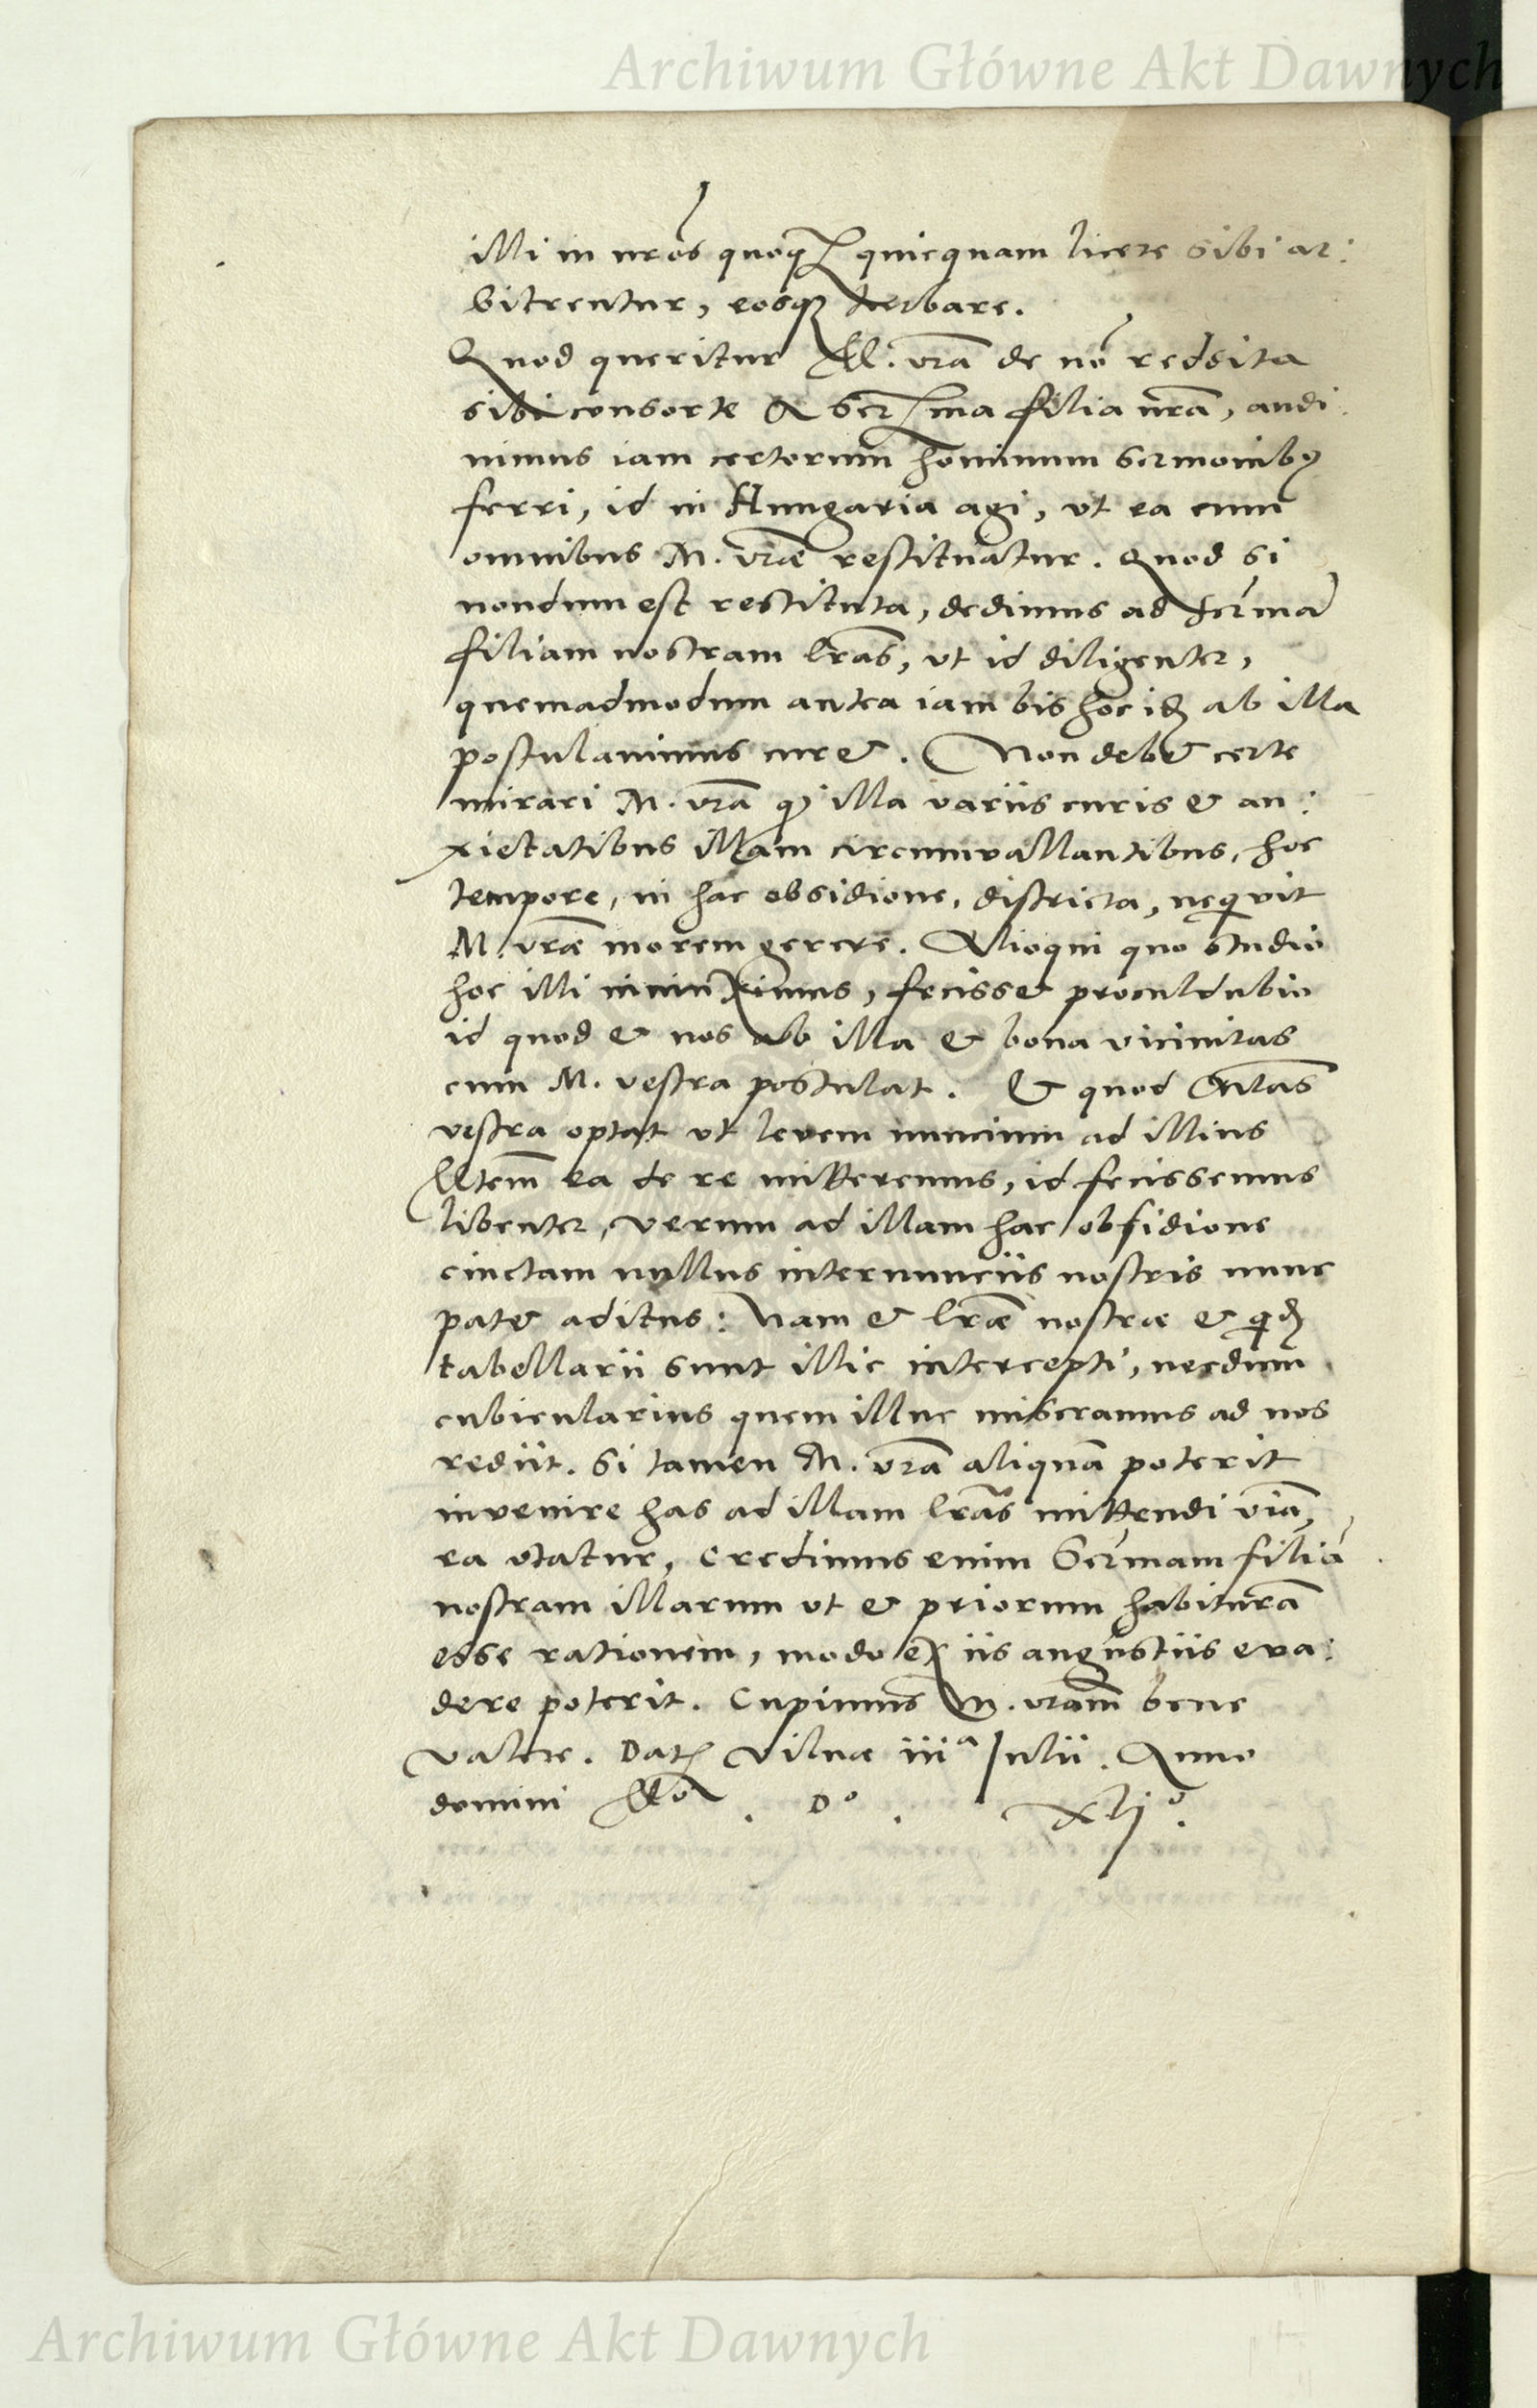 Archiwum Główne Akt Dawnych
illi in nros quoq quicquam licere sibi ar:
bitrentur, eosq turbare.
Quod queritur M. vra de no reddita
sibi consorte a Serma filia nra, audi
uimus iam certorum hominum sermonibus
ferri, id in Hungaria agi, ut ea cum
omnibus M. vræ restituatur. Quod si
nondum est restituta, dedimus ad Serma
filiam nostram lras, ut id diligenter,
quemadmodum antea iam bis hoc id ab illa
postulauimus curet. Non debet certe
mirari M. vra q illa variis curis et an:
xietatibus illam circumvallantibus, hoc
tempore, in hac obsidione, districta, nequit
M. vræ morem gerere. Alioqui quo studio
hoc illi iniunximus, fecisset proculdubio
id quod et nos ab illa et bona vicinitas
cum M. vestra postulat. Et quod
vestra optat ut levem nuncium ad illius
Mtem ea de re mitteremus, id fecissemus
libenter, verum ad illam hac obsidione
cinctam nullus internunciis nostris nunc
patet aditus: Nam et lræ nostræ et qd
tabellarii sunt illic intercepti, necdum
cubicularius quem illuc miseramus ad nos
rediit. Si tamen M. vra aliqua poterit
invenire has ad illam lras mittendi via,
ea utatur, credimus enim Sermam filia
nostram illarum ut et priorum habitura
esse rationem, modo ex iis angustiis eva:
dere poterit. Cupimus M. vram bene
valere. Dat Vilnæ iiia Iulii. Anno
domini Mo. Do. xljo.
Archiwum Główne Akt Dawnych